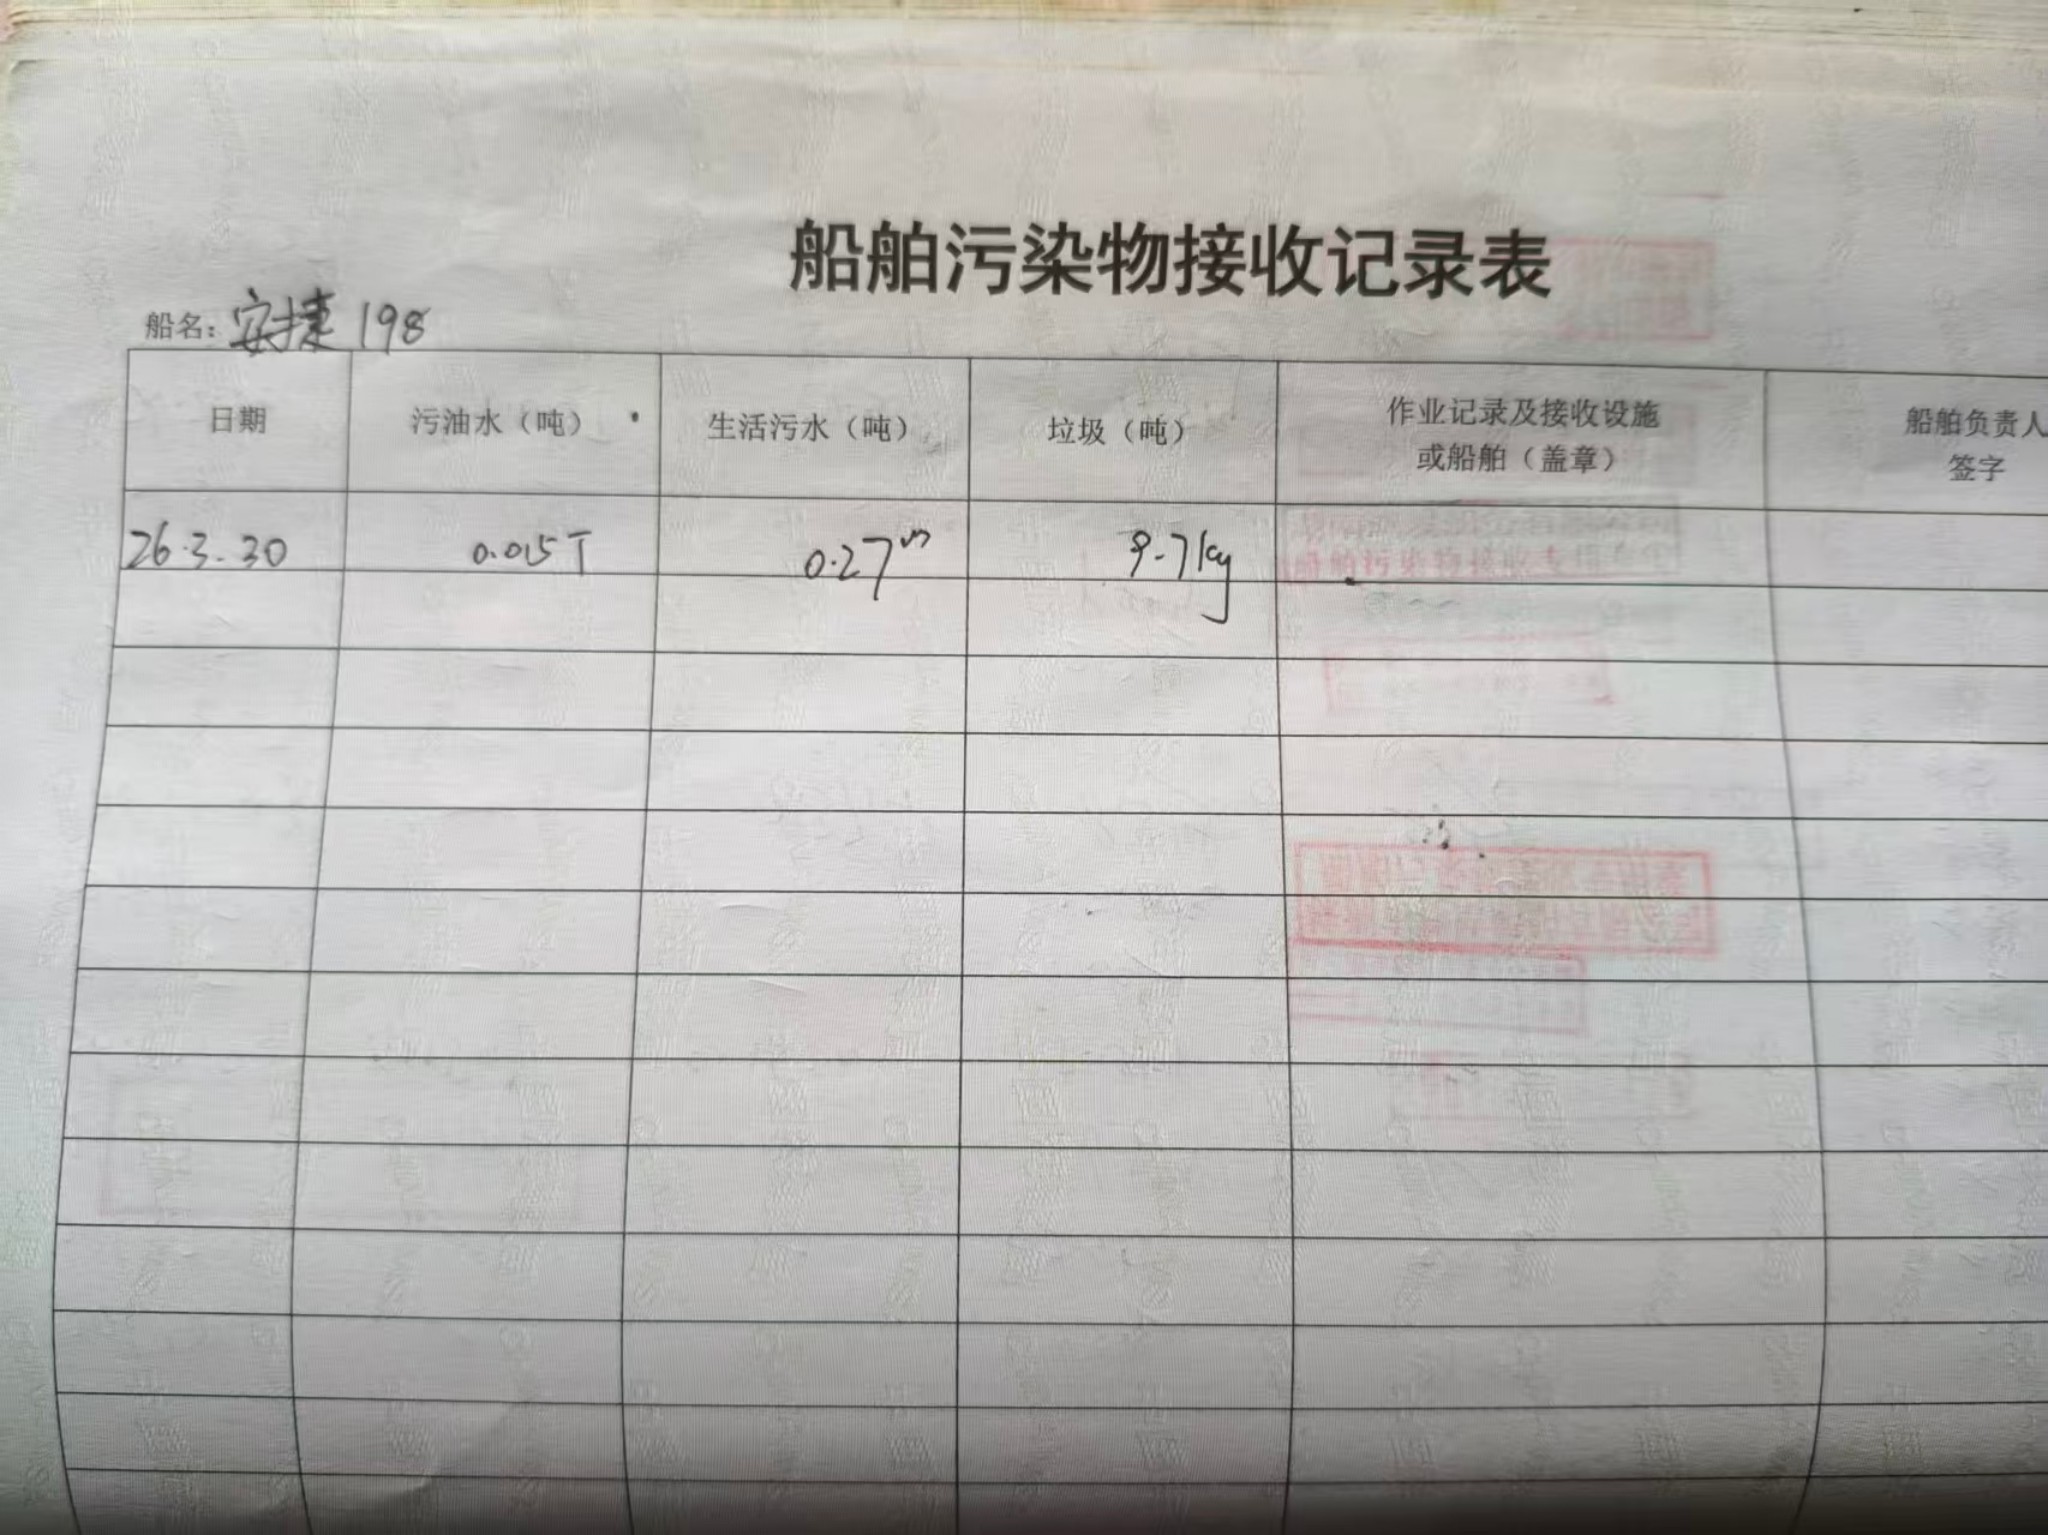 船舶污染物接收记录表
船名：安捷198
日期 污油水（吨） 生活污水（吨） 垃圾（吨） 作业记录及接收设施或船舶（盖章） 船舶负责人签字
26.3.30 0.015T 0.27m³ 9.7kg
船舶污染物接收专用章